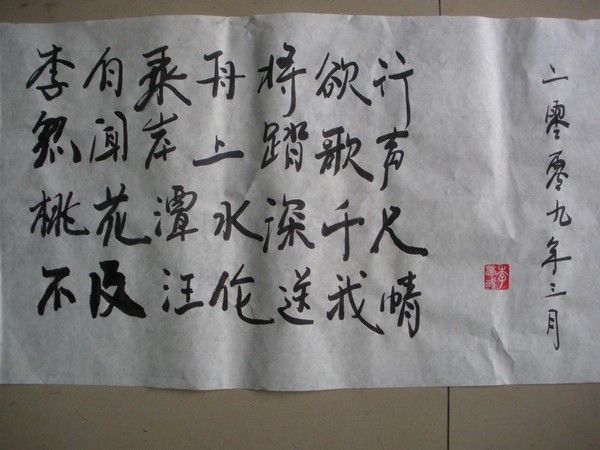 李白乘舟将欲行
忽闻岸上踏歌声
桃花潭水深千尺
不及汪伦送我情
二零零九年三月